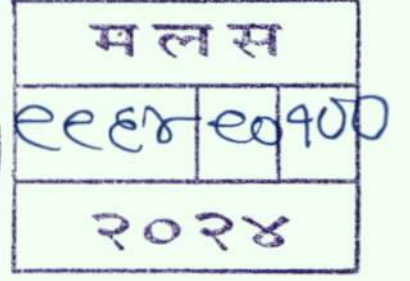 म ल स
९९६४ ९० १००
२०२४